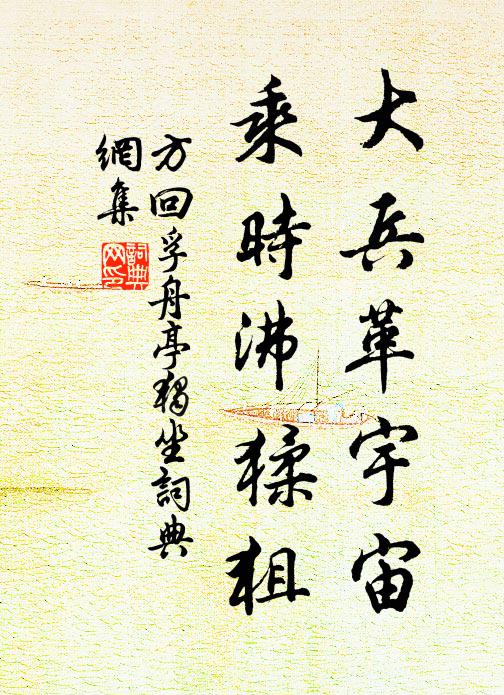 大兵革宇宙
乘時沸猱狙
方回孚舟亭獨坐詞典
網集
詞典
网印